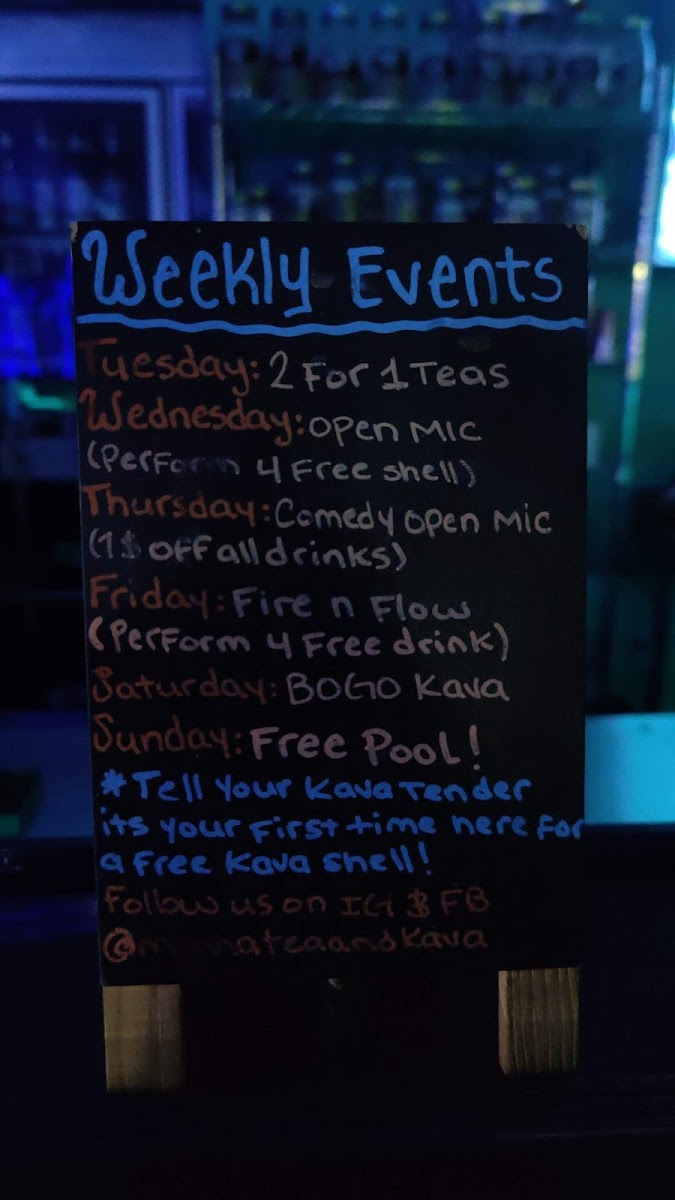 Weekly Events
Tuesday: 2 For 1 Teas
Wednesday: Open Mic
(Perform 4 Free shell)
Thursday: Comedy Open Mic
(1$ off all drinks)
Friday: Fire n Flow
(Perform 4 Free drink)
Saturday: BOGO Kava
Sunday: Free Pool!
*Tell Your Kava Tender
its your first time here for
a free Kava shell!
Follow us on IG $ FB